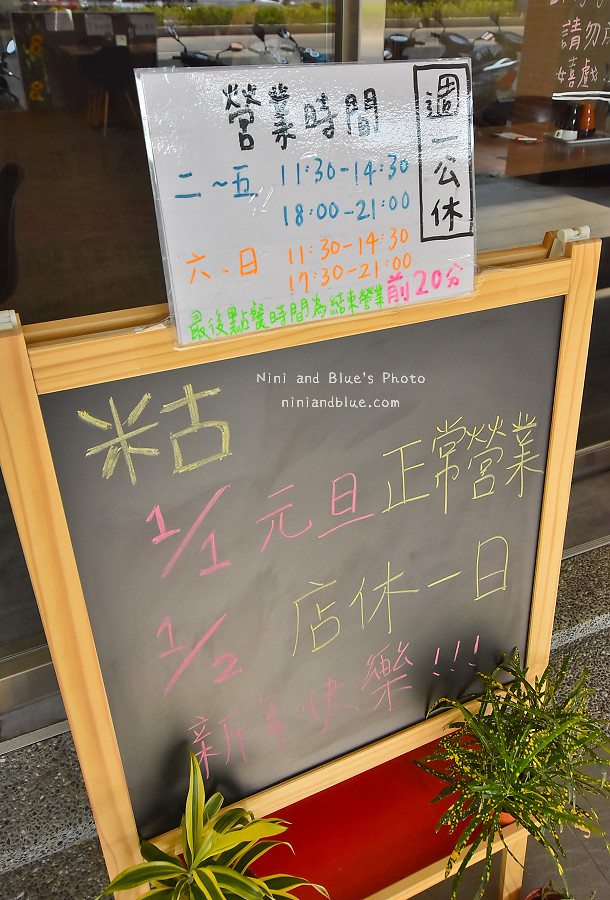 請勿
嬉戲
營業時間
週一公休
二~五 11:30-14:30
18:00-21:00
六、日 11:30-14:30
17:30-21:00
最後點餐時間為結束營業前20分
Nini and Blue's Photo
niniandblue.com
粘古
1/1 元旦正常營業
1/2 店休一日
新年快樂!!!